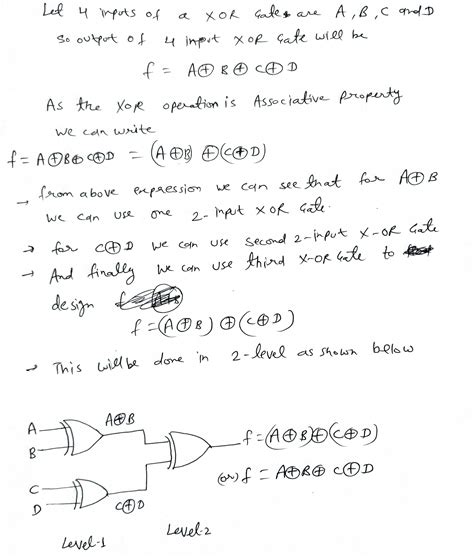 Let 4 inputs of a XOR Gates are A, B, C and D
So output of 4 input XOR Gate will be
f = A⊕B⊕C⊕D
As the XOR operation is Associative property
we can write
f = A⊕B⊕C⊕D = (A⊕B) ⊕(C⊕D)
→ from above expression we can see that for A⊕B
we can use one 2-input XOR Gate.
→ for C⊕D we can use second 2-input X-OR Gate
→ And finally we can use third X-OR Gate to
design
f = (A⊕B) ⊕ (C⊕D)
→ This will be done in 2-level as shown below
A⊕B
A
B
f = (A⊕B)⊕(C⊕D)
(or) f = A⊕B⊕C⊕D
C
D
C⊕D
Level-1
Level-2